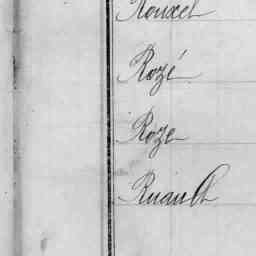 Rouxel
Rozé
Roze
Ruault